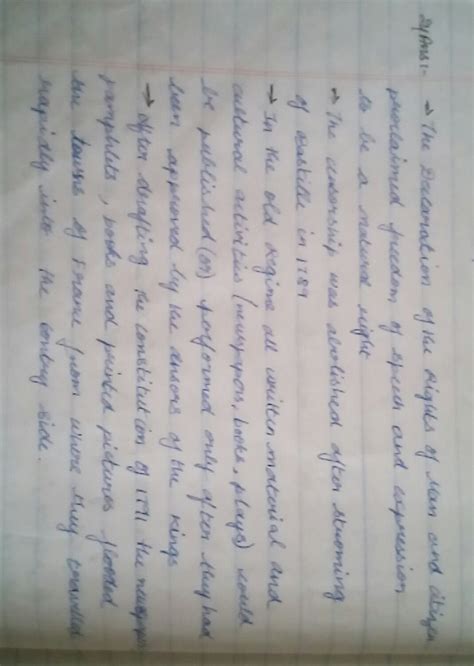 2) Ans:- → The Declaration of the Rights of Man and citizen
proclaimed freedom of speech and expression
to be a natural right
→ The censorship was abolished after storming
of bastille in 1789
→ In the old Regime all written material and
cultural activities (newspapers, books, plays) would
be published (or) performed only after they had
been approved by the censors of the kings
→ After drafting the constitution of 1791 the newspapers
pamphlets, books and printed pictures flooded
the towns of France from where they travelled
rapidly into the contry side.